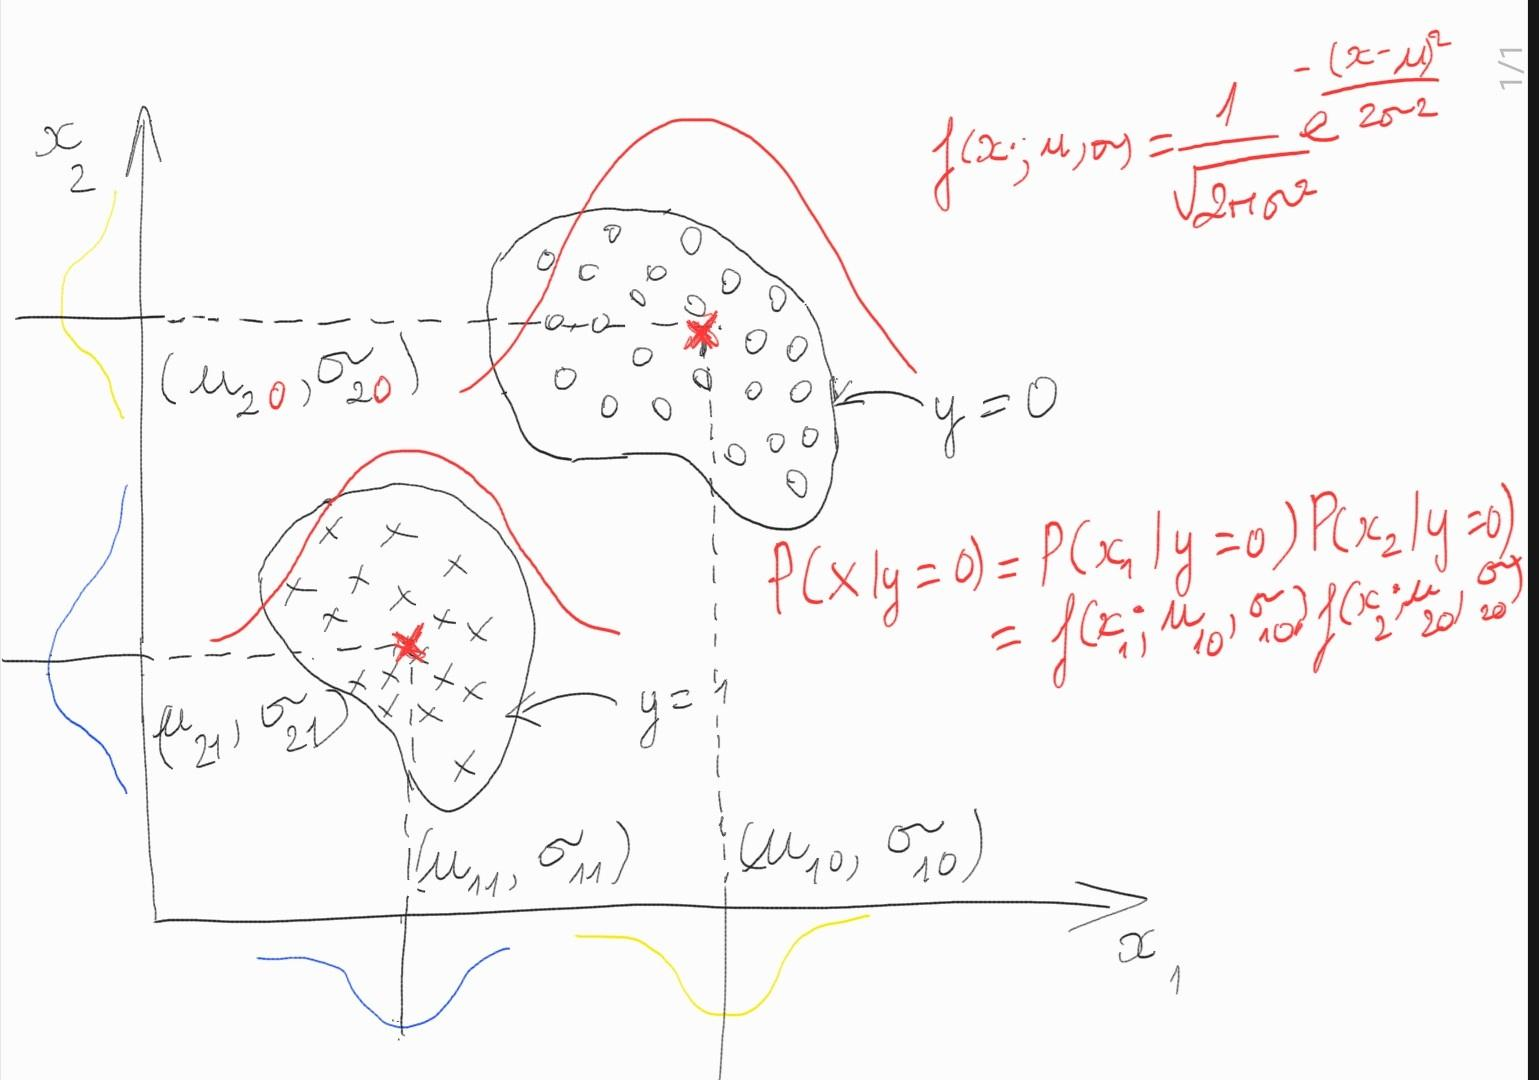 1/1
f(x; μ, σ) = 1/√(2πσ²) e^(-(x-μ)²/(2σ²))
x₂
(μ₂₀, σ₂₀)
y = 0
P(X|y=0) = P(x₁|y=0) P(x₂|y=0)
= f(x₁; μ₁₀, σ₁₀) f(x₂; μ₂₀, σ₂₀)
(μ₂₁, σ₂₁)
y = 1
(μ₁₁, σ₁₁)
(μ₁₀, σ₁₀)
x₁